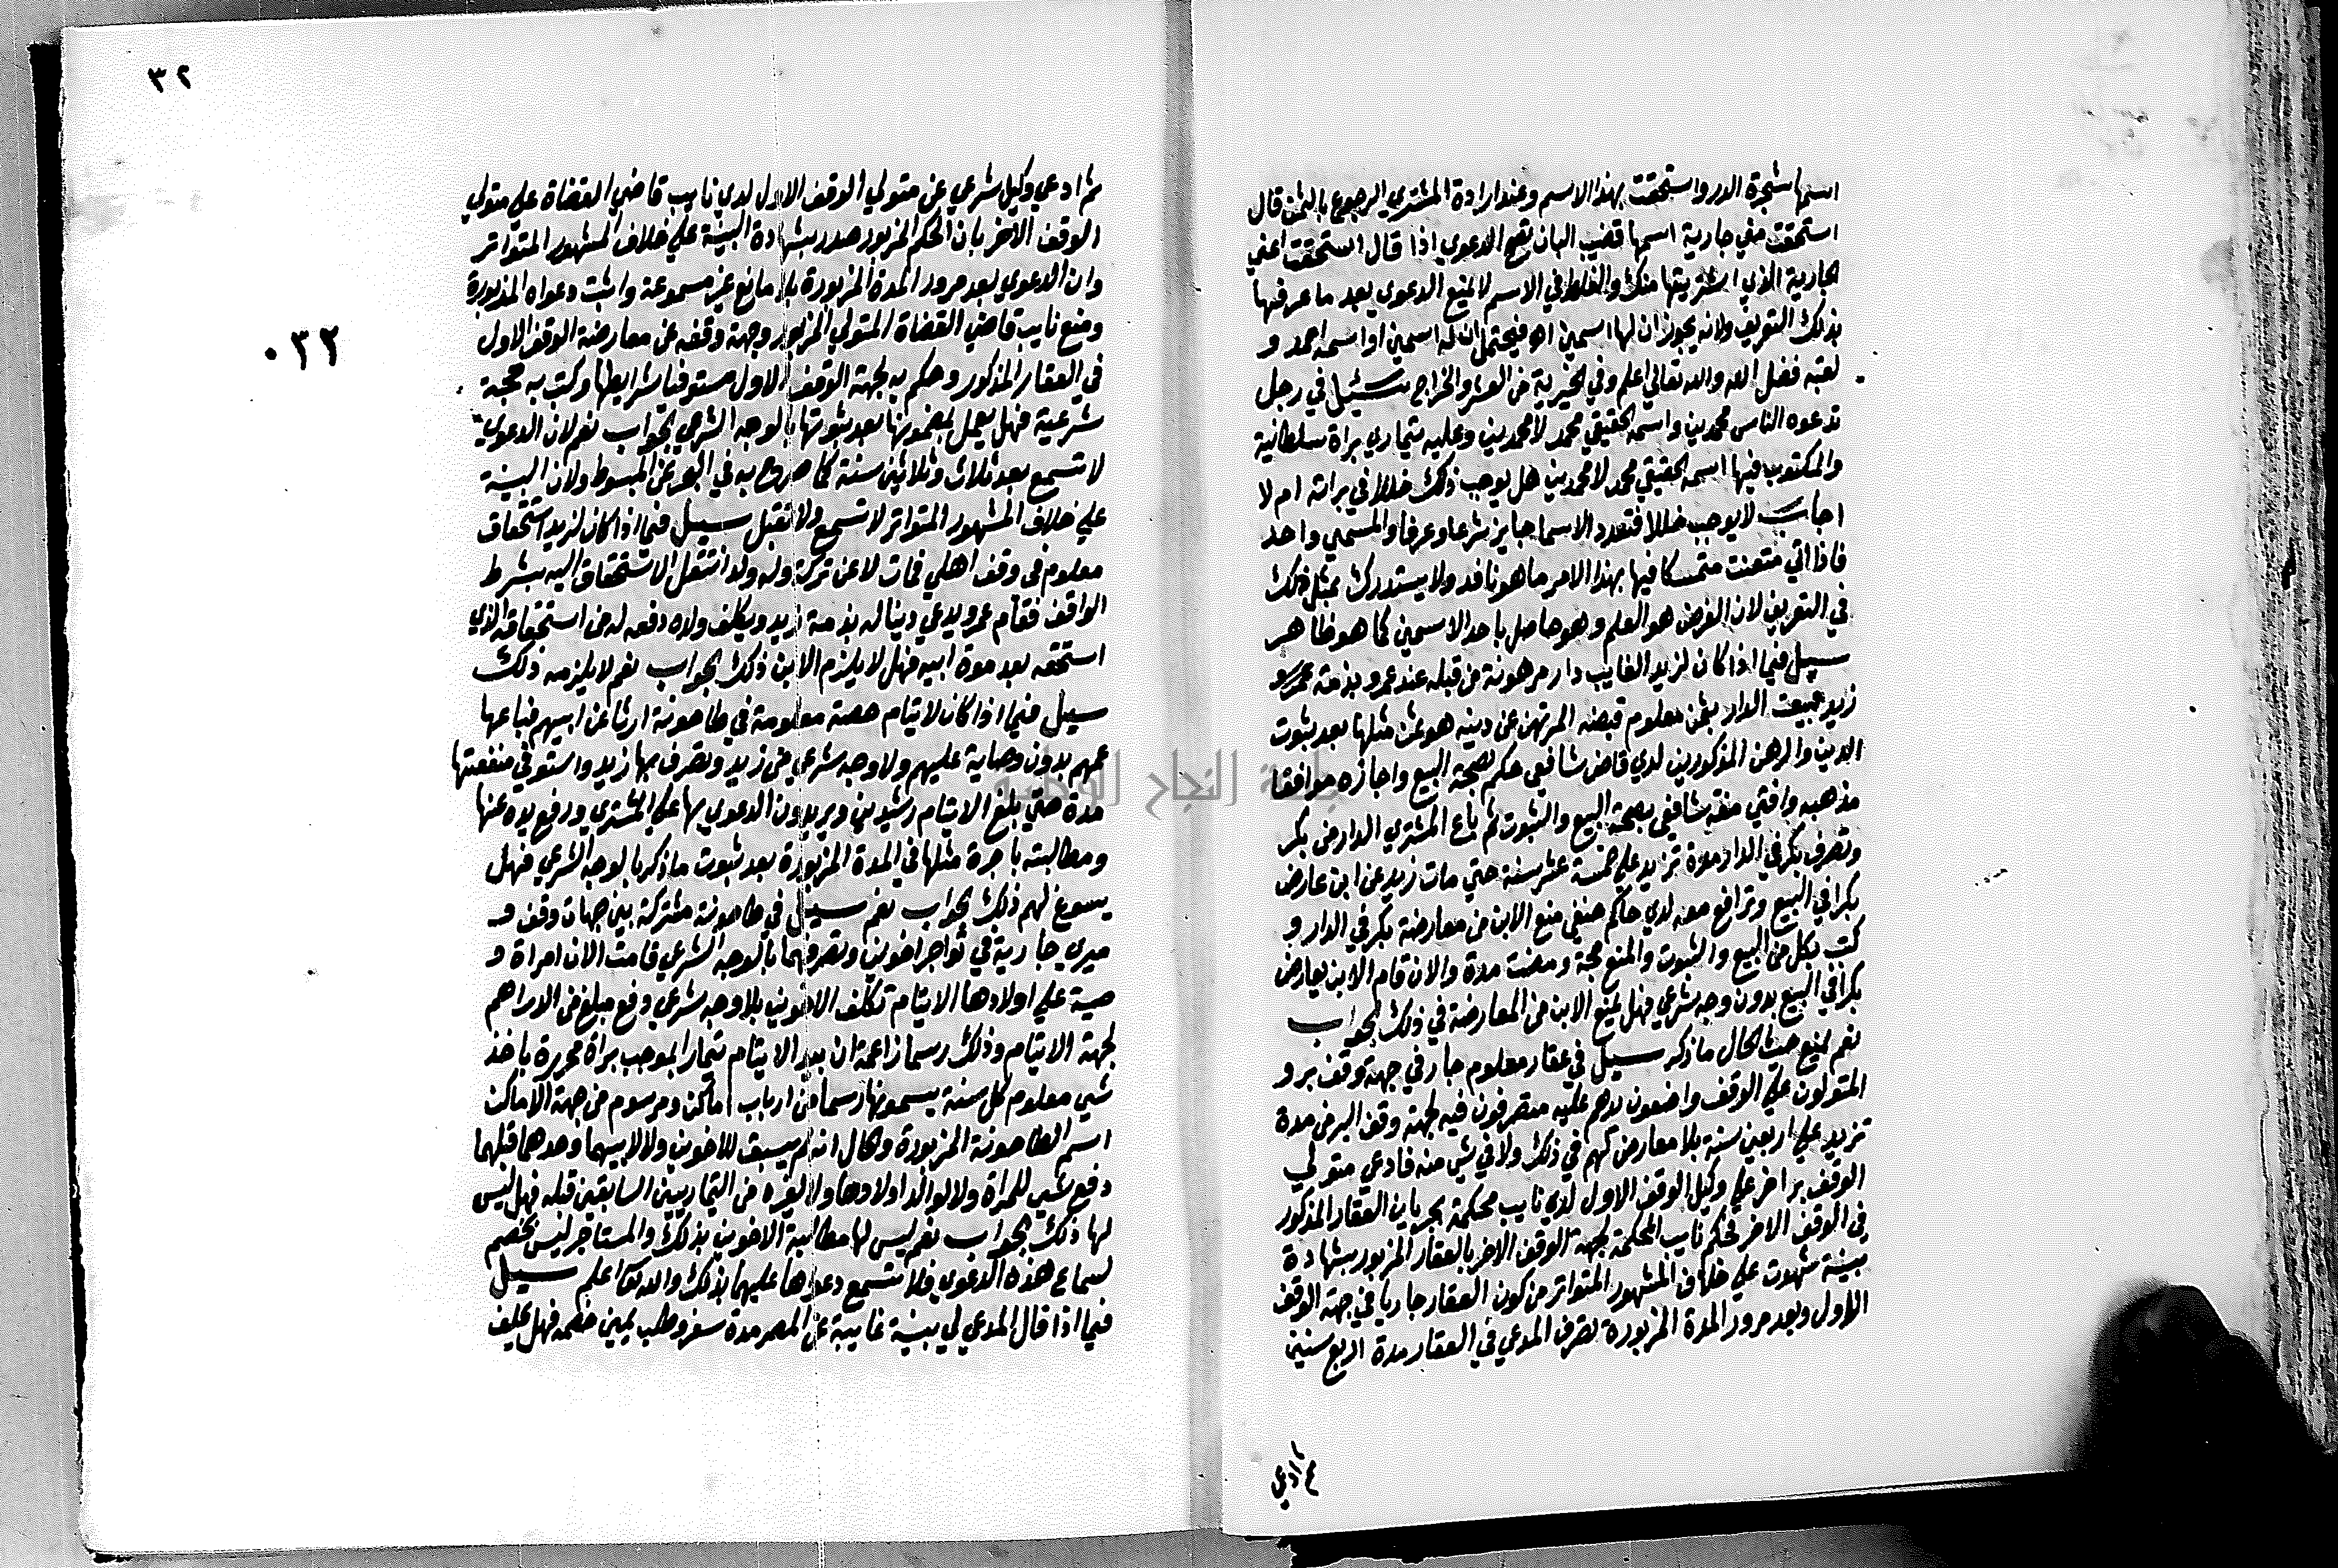 اسمها شجرة الدر واستحقت بهذا الاسم وعند ارادة المشتري الرجوع بالثمن قال
استحقت مني جارية اسمها قضيب البان تصح الدعوي اذا قال استحقت مني
الجارية الذي اشتريتها منك والغلط في الاسم لا يمنع الدعوي بعد ما عرفها
بذلك التعريف ولانه يجوز ان لها اسمين اه فيحتمل ان له اسمين او اسمه احمد و
لقبه فضل الله والله تعالي اعلم وفي الخيرية من العشر والخراج سئيل في رجل
تدعوه الناس محمدين واسمه الحقيقي محمد لا محمدين وعليه تيماري براة سلطانية
والمكتوب فيها اسمه الحقيقي محمد لا محمدين هل يوجب ذلك خللا في براته ام لا
اجاب لا يوجب خللا فتعدد الاسما جايز شرعا وعرفا والمسمي واحد
فاذا اتي متعنت متمسكا فيها بهذا الامر ما هو نافد ولا يستدرك بمثل ذلك
في التعريف لان الغرض هو العلم وهو حاصل باحد الاسمين كما هو ظاهر
سيل فيما اذا كان لزيد الغايب دار مرهونة من قبله عند عمرو بذمته عمرو
زيد فبيعت الدار بثمن معلوم قبضه المرتهن عن دينه هو ثمن مثلها بعد ثبوت
الدين والرهن المذكورين لدي قاض شافعي حكم بصحة البيع واجازه موافقا
مذهبه وافتي مفته شافعي بصحة البيع والثبوت ثم باع المشتري الدار من بكر
وتصرف بكر في الدار مدة تزيد علي خمسة عشر سنة حتي مات زيد عن ابن عارض
بكرا في البيع وترافع معه لدي حاكم حنفي منع الابن من معارضة بكر في الدار و
كتب بكل من البيع والثبوت والمنع حجة ومضت مدة والان قام الابن يعارض
بكرا في البيع بدون وجه شرعي فهل يمنع الابن من المعارضة في ذلك الجواب
نعم يمنع حيث الحال ما ذكر سيل في عقار معلوم جار في جهة وقف بر و
المتولون علي الوقف واضعون يدهم عليه متصرفون فيه لجهة وقف البر من مدة
تزيد علي اربعين سنة بلا معارض لهم في ذلك ولا في شي منه فادعي متولي
الوقف بر اخر علي وكيل الوقف الاول لدي نايب محكمة بجريان العقار المذكور
في الوقف الاخر فحكم نايب المحكمة لجهة الوقف الاخر بالعقار المزبور بشهادة
بينة شهدت علي خلاف المشهور المتواتر من كون العقار جاريا في جهة الوقف
الاول وبعد مرور المدة المزبورة تصرف المدعي في العقار مدة اربع سنين
ثم ادعي
٣٢
٠٣٢
ثم ادعي وكيل شرعي عن متولي الوقف الاول لدي نايب قاضي القضاة علي متولي
الوقف الاخر بان الحكم المزبور صدر بشهادة البينة علي خلاف المشهور المتواتر
وان الدعوي بعد مرور المدة المزبورة بلا مانع غير مسموعة واثبت دعواه المزبورة
ومنع نايب قاضي القضاة المتولي المزبور وجهة وقفه عن معارضة الوقف الاول
في العقار المذكور وحكم به لجهة الوقف الاول مستوفيا شرايطها وكتب به حجة
شرعية فهل يعمل بمضمونها بعد ثبوتها بالوجه الشرعي الجواب نعم لان الدعوي
لا تسمع بعد ثلاث وثلاثين سنة كما صرح به في البحر عن المبسوط ولان البينة
علي خلاف المشهور المتواتر لا تسمع ولا تقبل سيل فيما اذا كان لزيد استحقاق
معلوم في وقف اهلي فمات لا عن تركة وله ولد انتقل الاستحقاق اليه بشرط
الواقف فقام عمرو يدعي دينا له بذمة زيد ويكلف ولده دفعه له من استحقاقه الذي
استحقه بعد موة ابيه فهل لا يلزم الابن ذلك الجواب نعم لا يلزمه ذلك
سيل فيما اذا كان لايتام حصة معلومة في طاحونة ارثا عن ابيهم فباعها
عمهم بدون وصاية عليهم ولا وجه شرعي من زيد وتصرف بها زيد واستوفي منفعتها
مدة حتي بلغ الايتام رشيدين ويريدون الدعوي بها علي المشتري ورفع يده عنها
ومطالبته باجرة مثلها في المدة المزبورة بعد ثبوت ما ذكر بالوجه الشرعي فهل
يسوغ لهم ذلك الجواب نعم سيل في طاحونة مشتركة بين جهات وقف و
ميري جارية في تواجر اخوين وتصرفهما بالوجه الشرعي قامت الان امراة و
صية علي اولادها الايتام تكلف الاخوين بلا وجه شرعي دفع مبلغ من الدراهم
لجهة الايتام وذلك رسما زاعمة ان بيد الايتام تيمارا بموجب براة محررة باخذ
شي معلوم كل سنة يسمونها رسما من ارباب اماكن ومرسوم من جهة الاماكن
اسم الطاحونة المزبورة والحال انه لم يسبق للاخوين ولا لابيهما وجدهما قبلهما
دفع شي للمراة ولا لوالد اولادها ولا لغيره من التيماريين السابقين قبله فهل ليس
لها ذلك الجواب نعم ليس لها مطالبة الاخوين بذلك والمستاجر ليس بخصم
لسماع هذه الدعوي فلا تسمع دعواها عليهما بذلك والله تعا اعلم سيل
فيما اذا قال المدعي لي بينة غايبة عن المصر مدة سفر وطلب يمين خصمه فهل يحلف